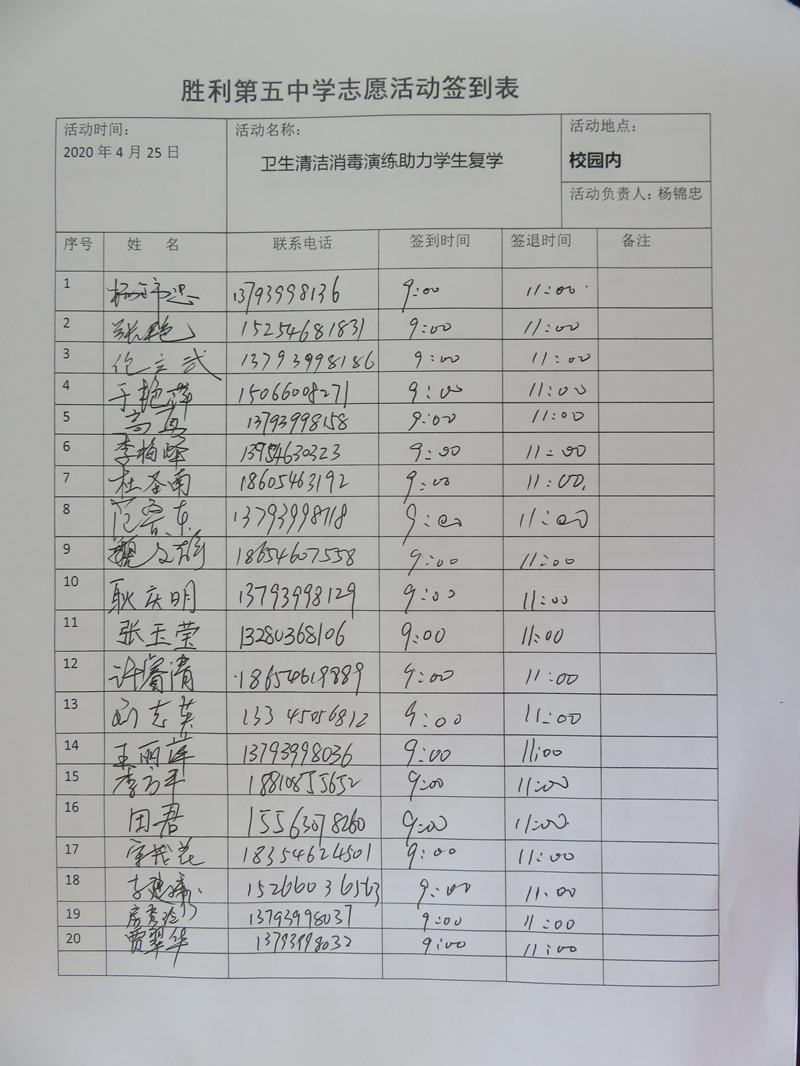 胜利第五中学志愿活动签到表
活动时间： 活动名称： 活动地点：
2020 年 4 月 25 日 卫生清洁消毒演练助力学生复学 校园内
活动负责人：杨锦忠
序号 姓 名 联系电话 签到时间 签退时间 备注
1 杨锦忠 13793998136 9:00 11:00
2 张艳 15254681831 9:00 11:00
3 伦立武 13793998186 9:00 11:00
4 于艳萍 15066008271 9:00 11:00
5 高真 13793998158 9:00 11:00
6 李柏峰 13954630323 9:00 11:00
7 杜圣南 18605463192 9:00 11:00.
8 东 13793998718 9:00 11:00
9 魏文 18654607558 9:00 11:00
10 耿庆明 13793998129 9:00 11:00
11 张玉莹 13280368106 9:00 11:00
12 许睿清 18654619889 9:00 11:00
13 刘志英 13345056812 9:00 11:00
14 王丽萍 13793998036 9:00 11:00
15 李方平 18810855652 9:00 11:00
16 田君 15563078260 9:00 11:00
17 花 18354624501 9:00 11:00
18 李建 15266036563 9:00 11:00
19 房秀玲 13793998037 9:00 11:00
20 贾翠华 13793998032 9:00 11:00